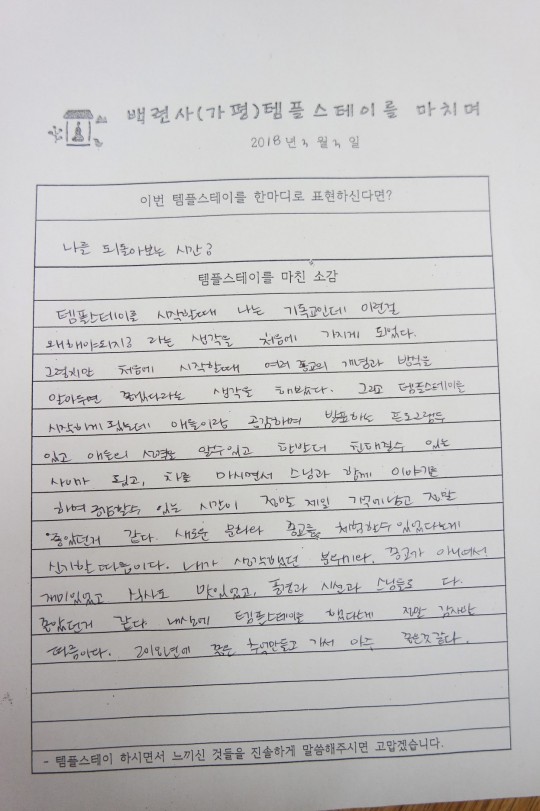 백련사(가평)템플스테이를 마치며
2018년 3월 3일
이번 템플스테이를 한마디로 표현하신다면?
나를 되돌아보는 시간
템플스테이를 마친 소감
템플스테이를 시작할때 나는 기독교인데 이런걸
왜해야되지? 라는 생각을 처음에 가지게 되었다.
그렇지만 처음에 시작할때 여러 종교의 개념과 방식을
알아두면 좋겠다라는 생각을 해봤다. 그리고 템플스테이를
시작하게 됐는데 애들이랑 공감하며 발표하는 프로그램도
있고 애들의 성격도 알수있고 한발더 친해질수 있는
사이가 됐고, 차를 마시면서 스님과 함께 이야기를
하며 공감할수 있는 시간이 정말 제일 기억에남고 정말
좋았던거 같다. 새로운 문화와 종교를 체험할수 있었다는게
신기할 따름이다. 내가 생각했던 분위기와, 종교가 아니여서
재미있었고 식사도 맛있었고, 풍경과 시설과 스님들도 다.
좋았던거 같다 내삶에 템플스테이를 했다는게 정말 감사할
따름이다. 2018년에 좋은 추억만들고 가서 아주 좋은것 같다.
- 템플스테이 하시면서 느끼신 것들을 진솔하게 말씀해주시면 고맙겠습니다.